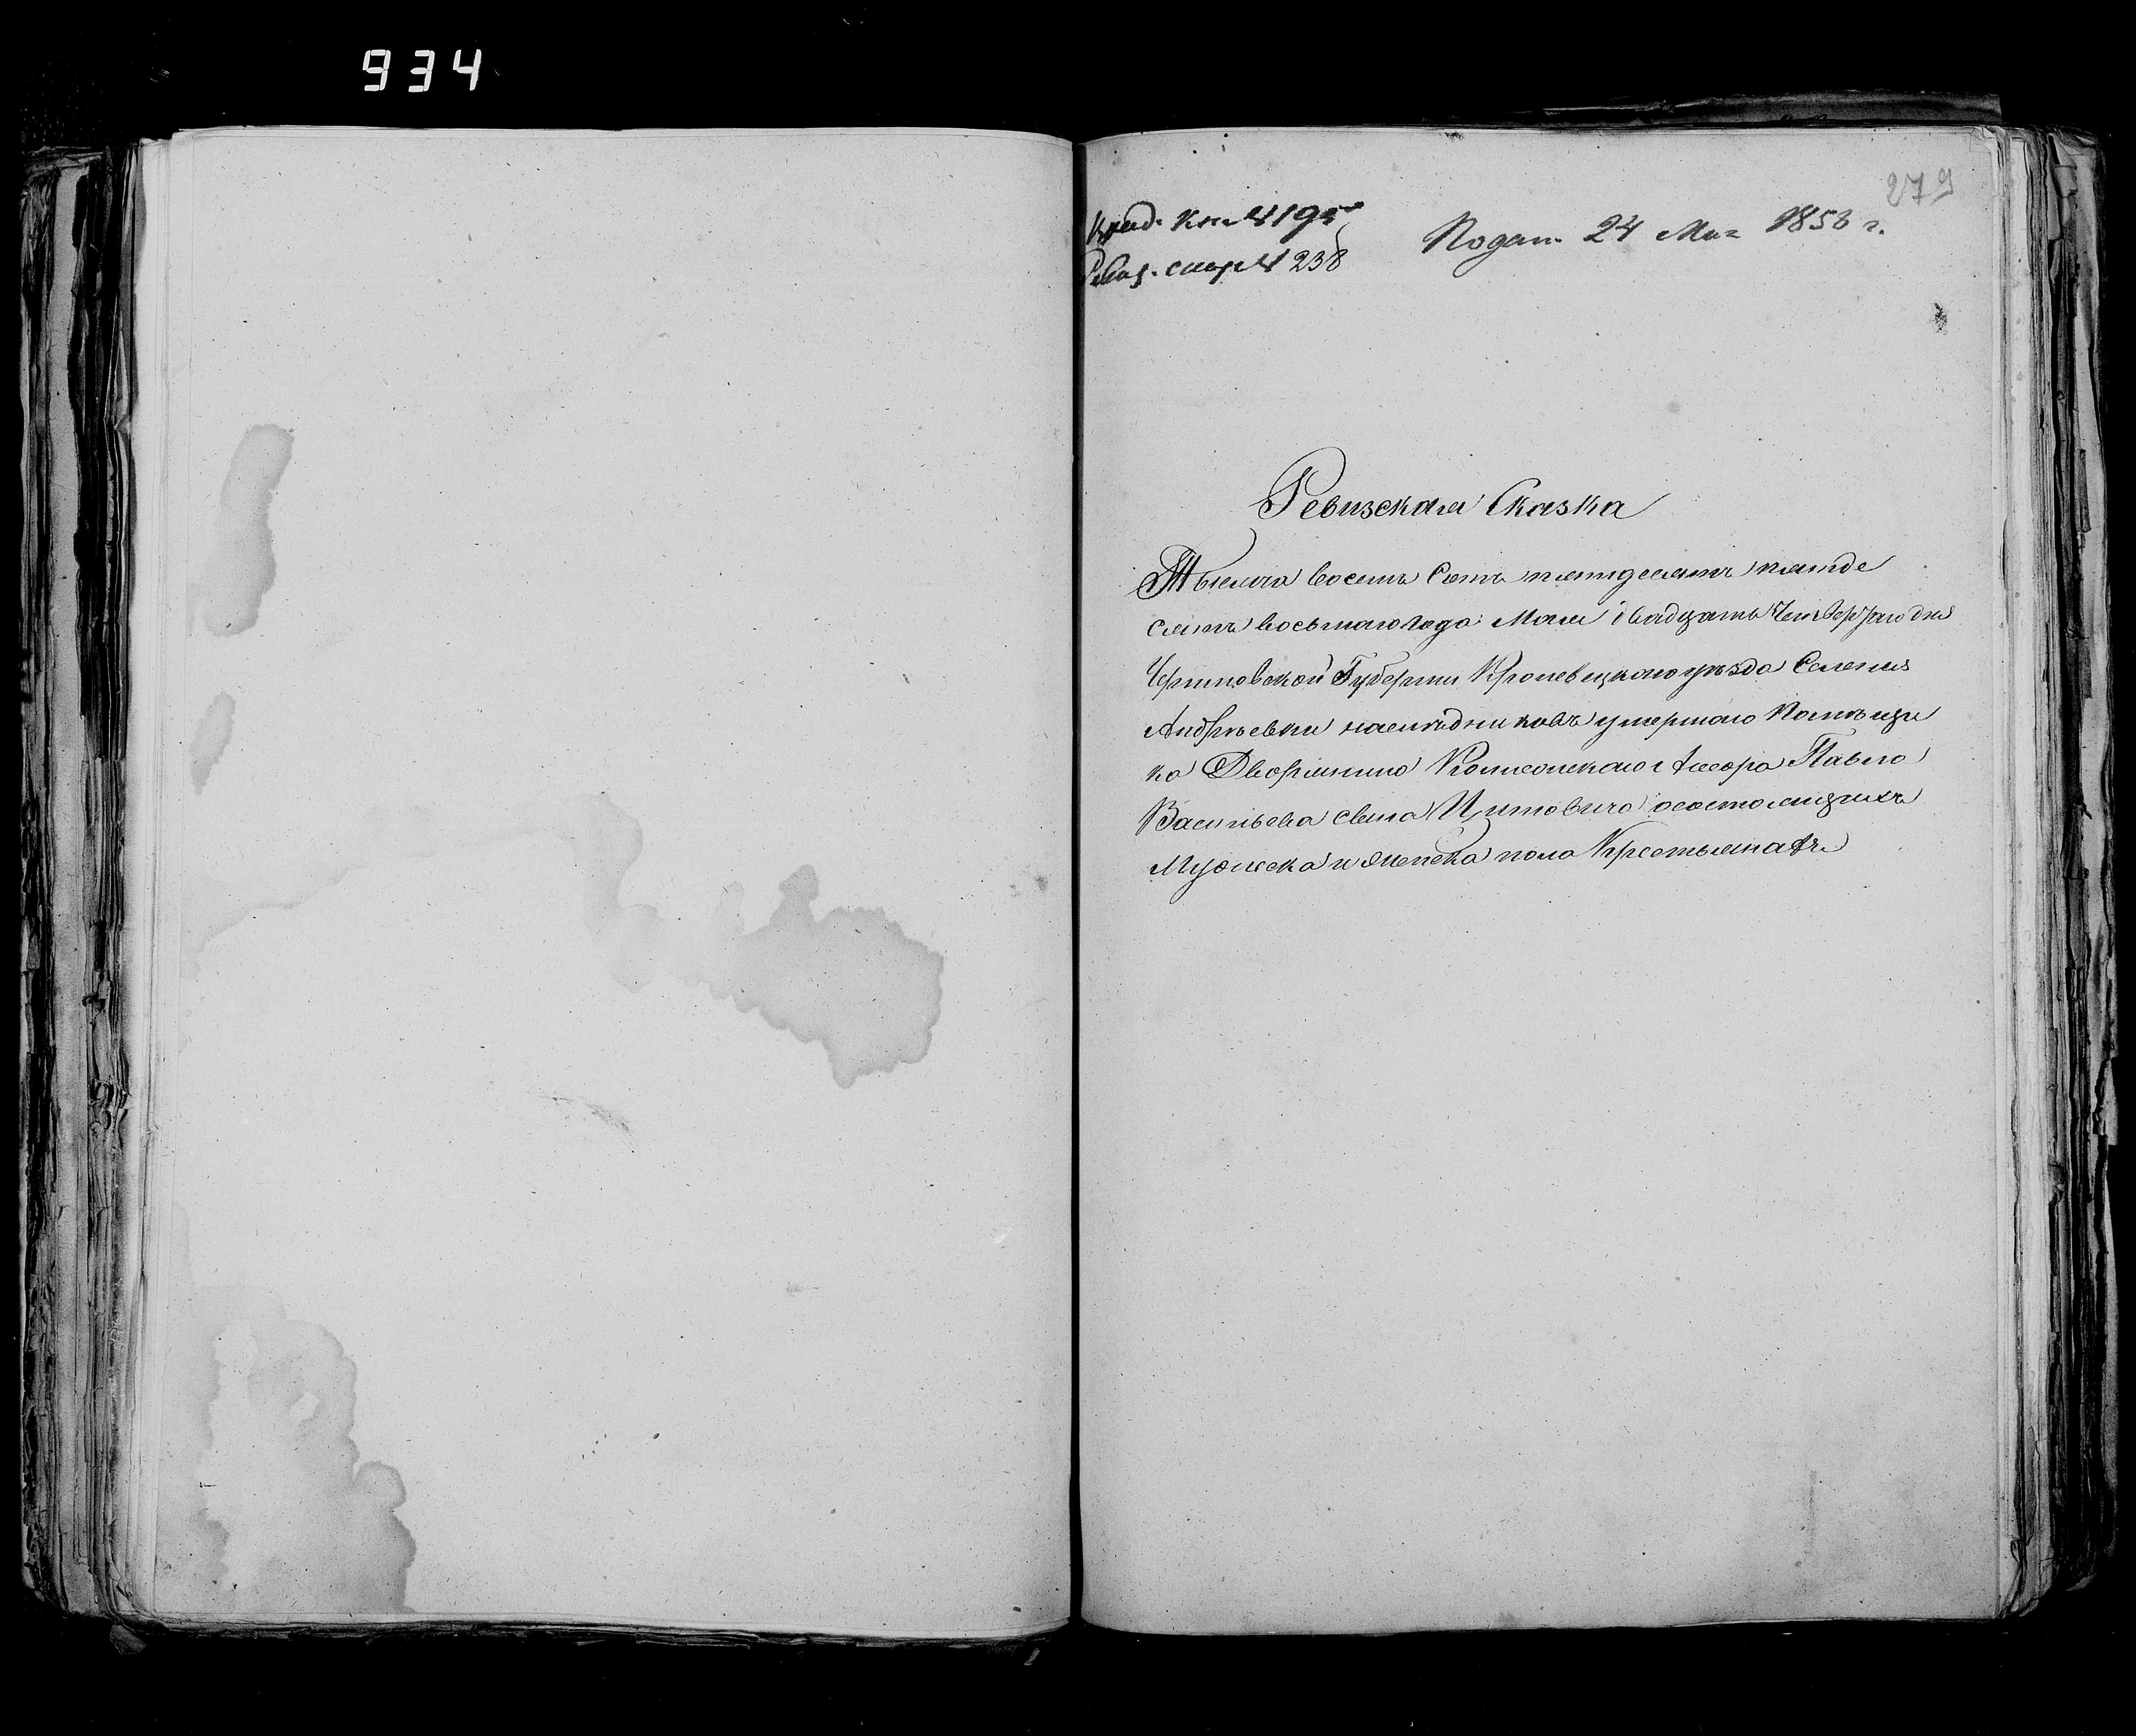 934
279
Кн. № 195
Подан. 24 Мая 1858 г.
Ревиз. № 238
Ревизская Сказка
Тысяча восемь сотъ пятидесятъ пятьде
сятъ восьмаго года Мая двадцать Четвертаго дня
Черниговской Губернии Кролевецкаго уѣзда Селения
Андрѣевки наслѣдниковъ умершаго Помѣщи
ка Дворянина Коллежскаго Асесора Павла
Васильева сына Цитовича о состоящихъ
Мужеска и женска пола Крестьянахъ